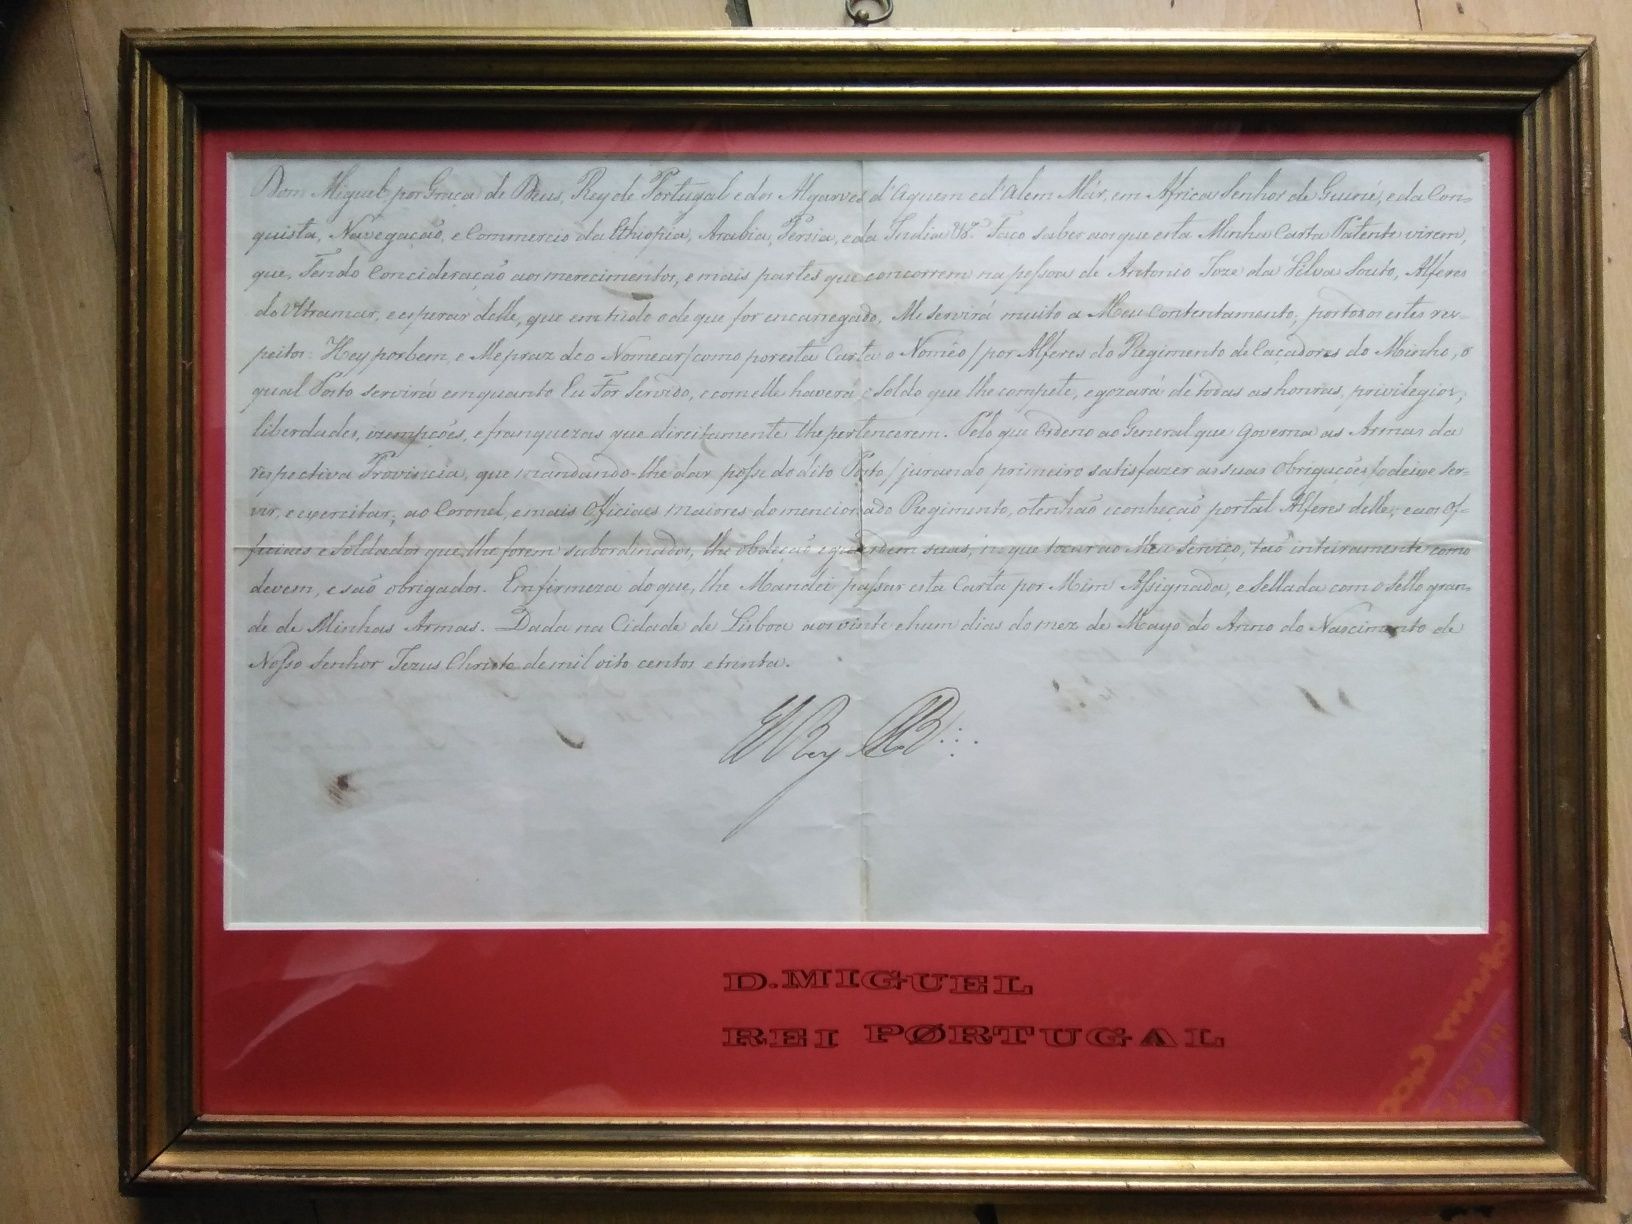 Dom Miguel por Graça de Deus, Rey de Portugal e dos Algarves d'Aquem e d'Alem Mar, em Africa Senhor de Guiné, e da Con-
quista, Navegação, e Commercio da Ethiopia, Arabia, Persia, e da India &ª. Faço saber aos que esta Minha Carta Patente virem,
que, Tendo Concideração aos merecimentos, e mais partes que concorrem na pessoa de Antonio Joze da Silva Souto, Alferes
do Ultramar, e esperar delle, que em tudo o de que for encarregado, Me servirá muito a Meu Contentamento, por todos estes res-
peitos: Hey por bem, e Me praz de o Nomear / como por esta Carta o Nomêo / por Alferes do Regimento de Caçadores do Minho, o
qual Posto servirá em quanto Eu For Servido, e com elle haverá o soldo que lhe compete, e gozará de todas as honras, privilegios,
liberdades, izempções, e franquezas que direitamente lhe pertencerem. Pelo que Ordeno ao General que Governa as Armas da
respectiva Provincia, que mandando-lhe dar posse do dito Posto / jurando primeiro satisfazer as suas obrigações / o deixe ser-
vir, e exercitar; ao Coronel, e mais Officiaes maiores do mencionado Regimento, o tenhão e conheção por tal Alferes delle; e aos Of-
ficiaes e Soldados que lhe forem subordinados, lhe obdeção e guardem suas, in que tocar ao Meu Serviço, tão inteiramente como
devem, e são obrigados. Em firmeza do que, lhe Mandei passar esta Carta por Mim Assignada, e Sellada com o sello gran-
de de Minhas Armas. Dada na Cidade de Lisboa aos vinte e hum dias do mez de Mayo do Anno do Nascimento de
Nosso Senhor Jezus Christo de mil oito centos e trinta.
El Rey
D. MIGUEL
REI PØRTUGAL